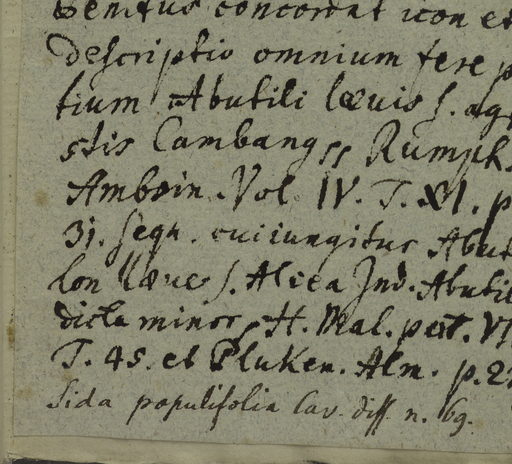 Penitus concordat icon et
descriptio omnium fere p
tium Abutili lævis s. agr
stis Cambang ss Rumph.
Amboin. Vol. IV. T. XI. p
31. seqq. cui iungitur Abut
lon læve s. Alcea Ind. Abuti
dicta minor, H. Mal. part. VI
T. 45. et Pluken. Alm. p. 2
Sida populifolia Cav. diss. n. 69.